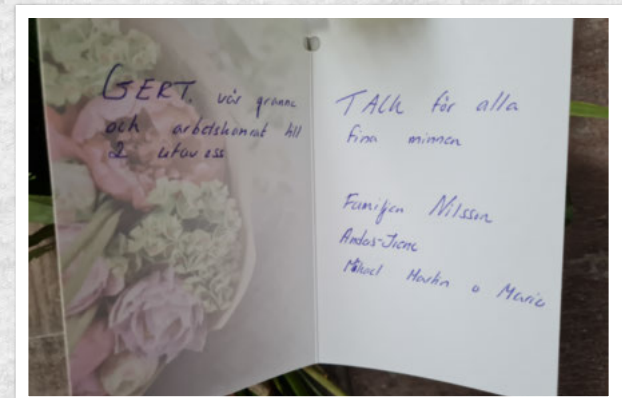 GERT. vår granne
och arbetskamrat till
2 utav oss
TACK för alla
fina minnen
Familjen Nilsson
Anders-Irene
Mikael Martin o Maria